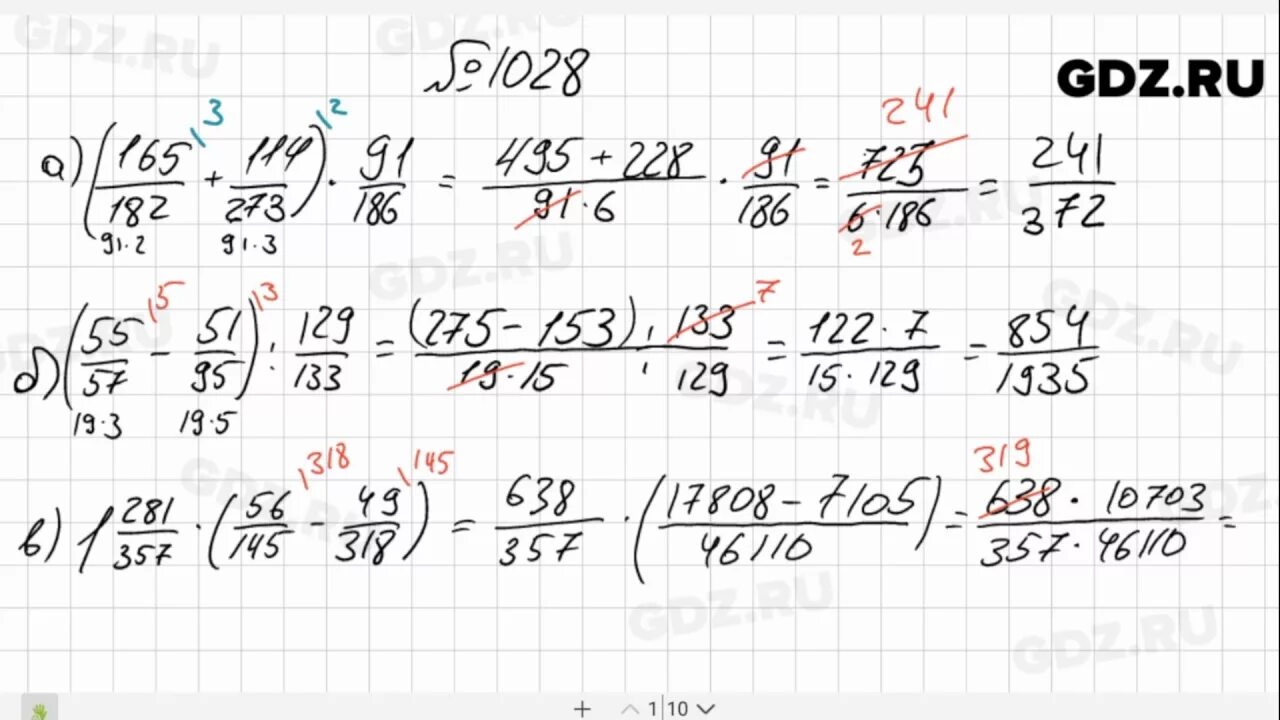 №1028
GDZ.RU
241
а) (165/182 ⌐3 + 114/273 ⌐2) · 91/186 = (495 + 228)/(91·6) · 91/186 = 723/(6·186) = 241/372
91·2 91·3 2
б) (55/57 ⌐5 − 51/95 ⌐3) : 129/133 = (275 − 153)/(19·15) · 133/129 = (122 · 7)/(15 · 129) = 854/1935
7
19·3 19·5
в) 1 281/357 · (56/145 ⌐318 − 49/318 ⌐145) = 638/357 · ((17808 − 7105)/46110) = (638 · 10703)/(357 · 46110) =
319
1 10